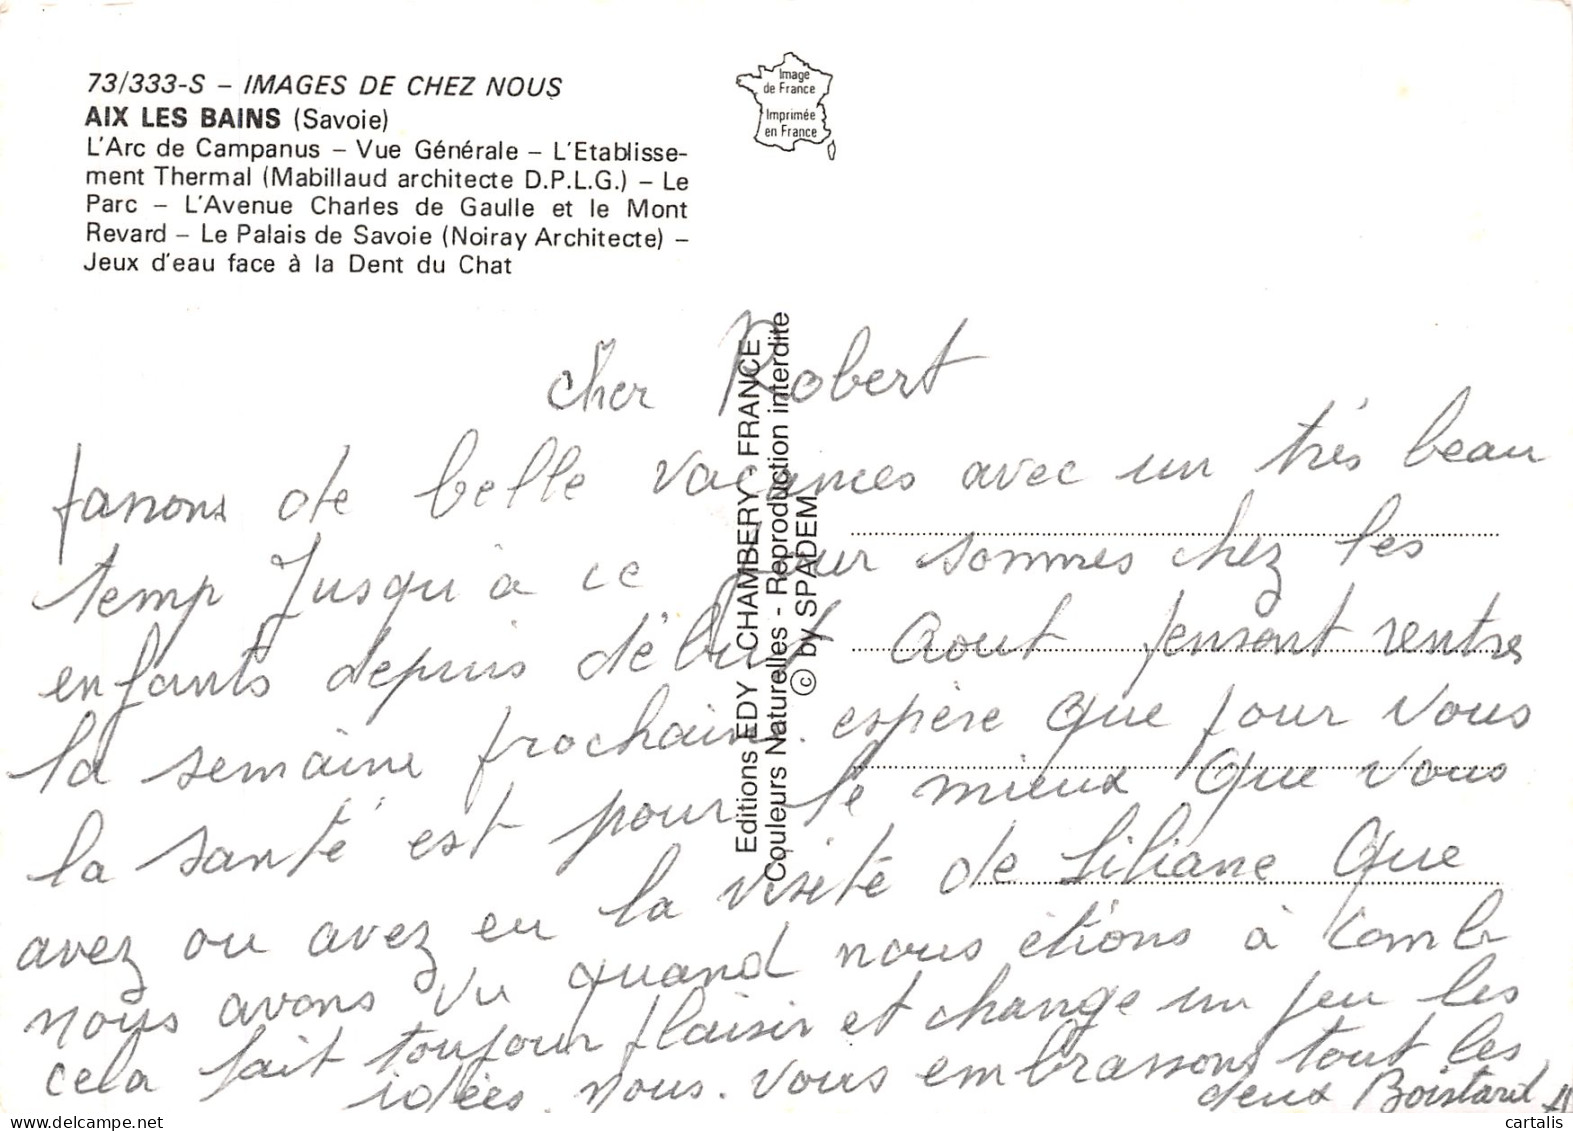 73/333-S – IMAGES DE CHEZ NOUS
AIX LES BAINS (Savoie)
L'Arc de Campanus – Vue Générale – L'Etablisse-
ment Thermal (Mabillaud architecte D.P.L.G.) – Le
Parc – L'Avenue Charles de Gaulle et le Mont
Revard – Le Palais de Savoie (Noiray Architecte) –
Jeux d'eau face à la Dent du Chat
Image
de France
Imprimée
en France
Editions EDY CHAMBERY - FRANCE
Couleurs Naturelles - Reproduction interdite
© by SPADEM
Cher Robert
passons de belle vacances avec un très beau
temp Jusqu'à ce jour sommes chez les
enfants depuis début Aout pensont rentres
la semaine prochaine. espère que pour vous
la santé est pour le mieux Que vous
avez ou avez eu la visite de Liliane Que
nous avons vu quand nous étions à Comb
cela fait toujour plaisir et change un peu les
idées. nous. vous embrassons tout les
deux Boistard
cartalis
delcampe.net